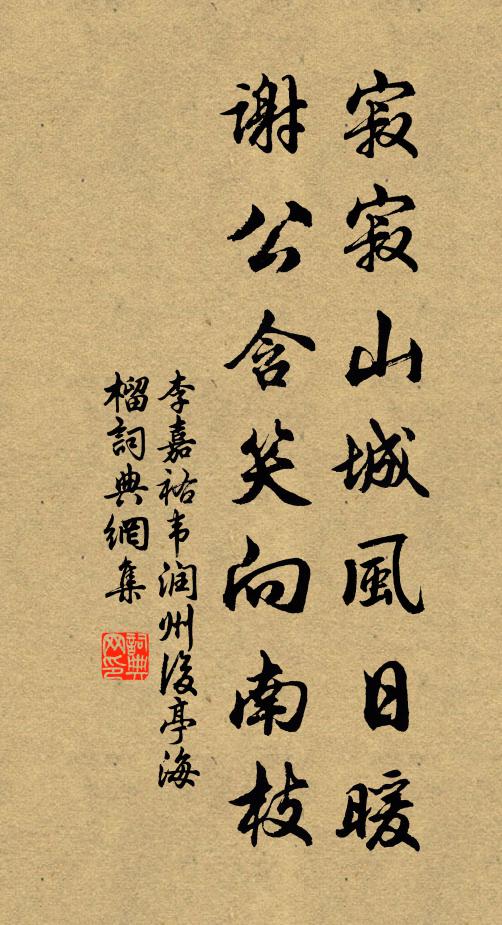 寂寂山城風日暖
謝公含笑向南枝
李嘉祐韦润州後亭海
榴詞典網集
詞典网印